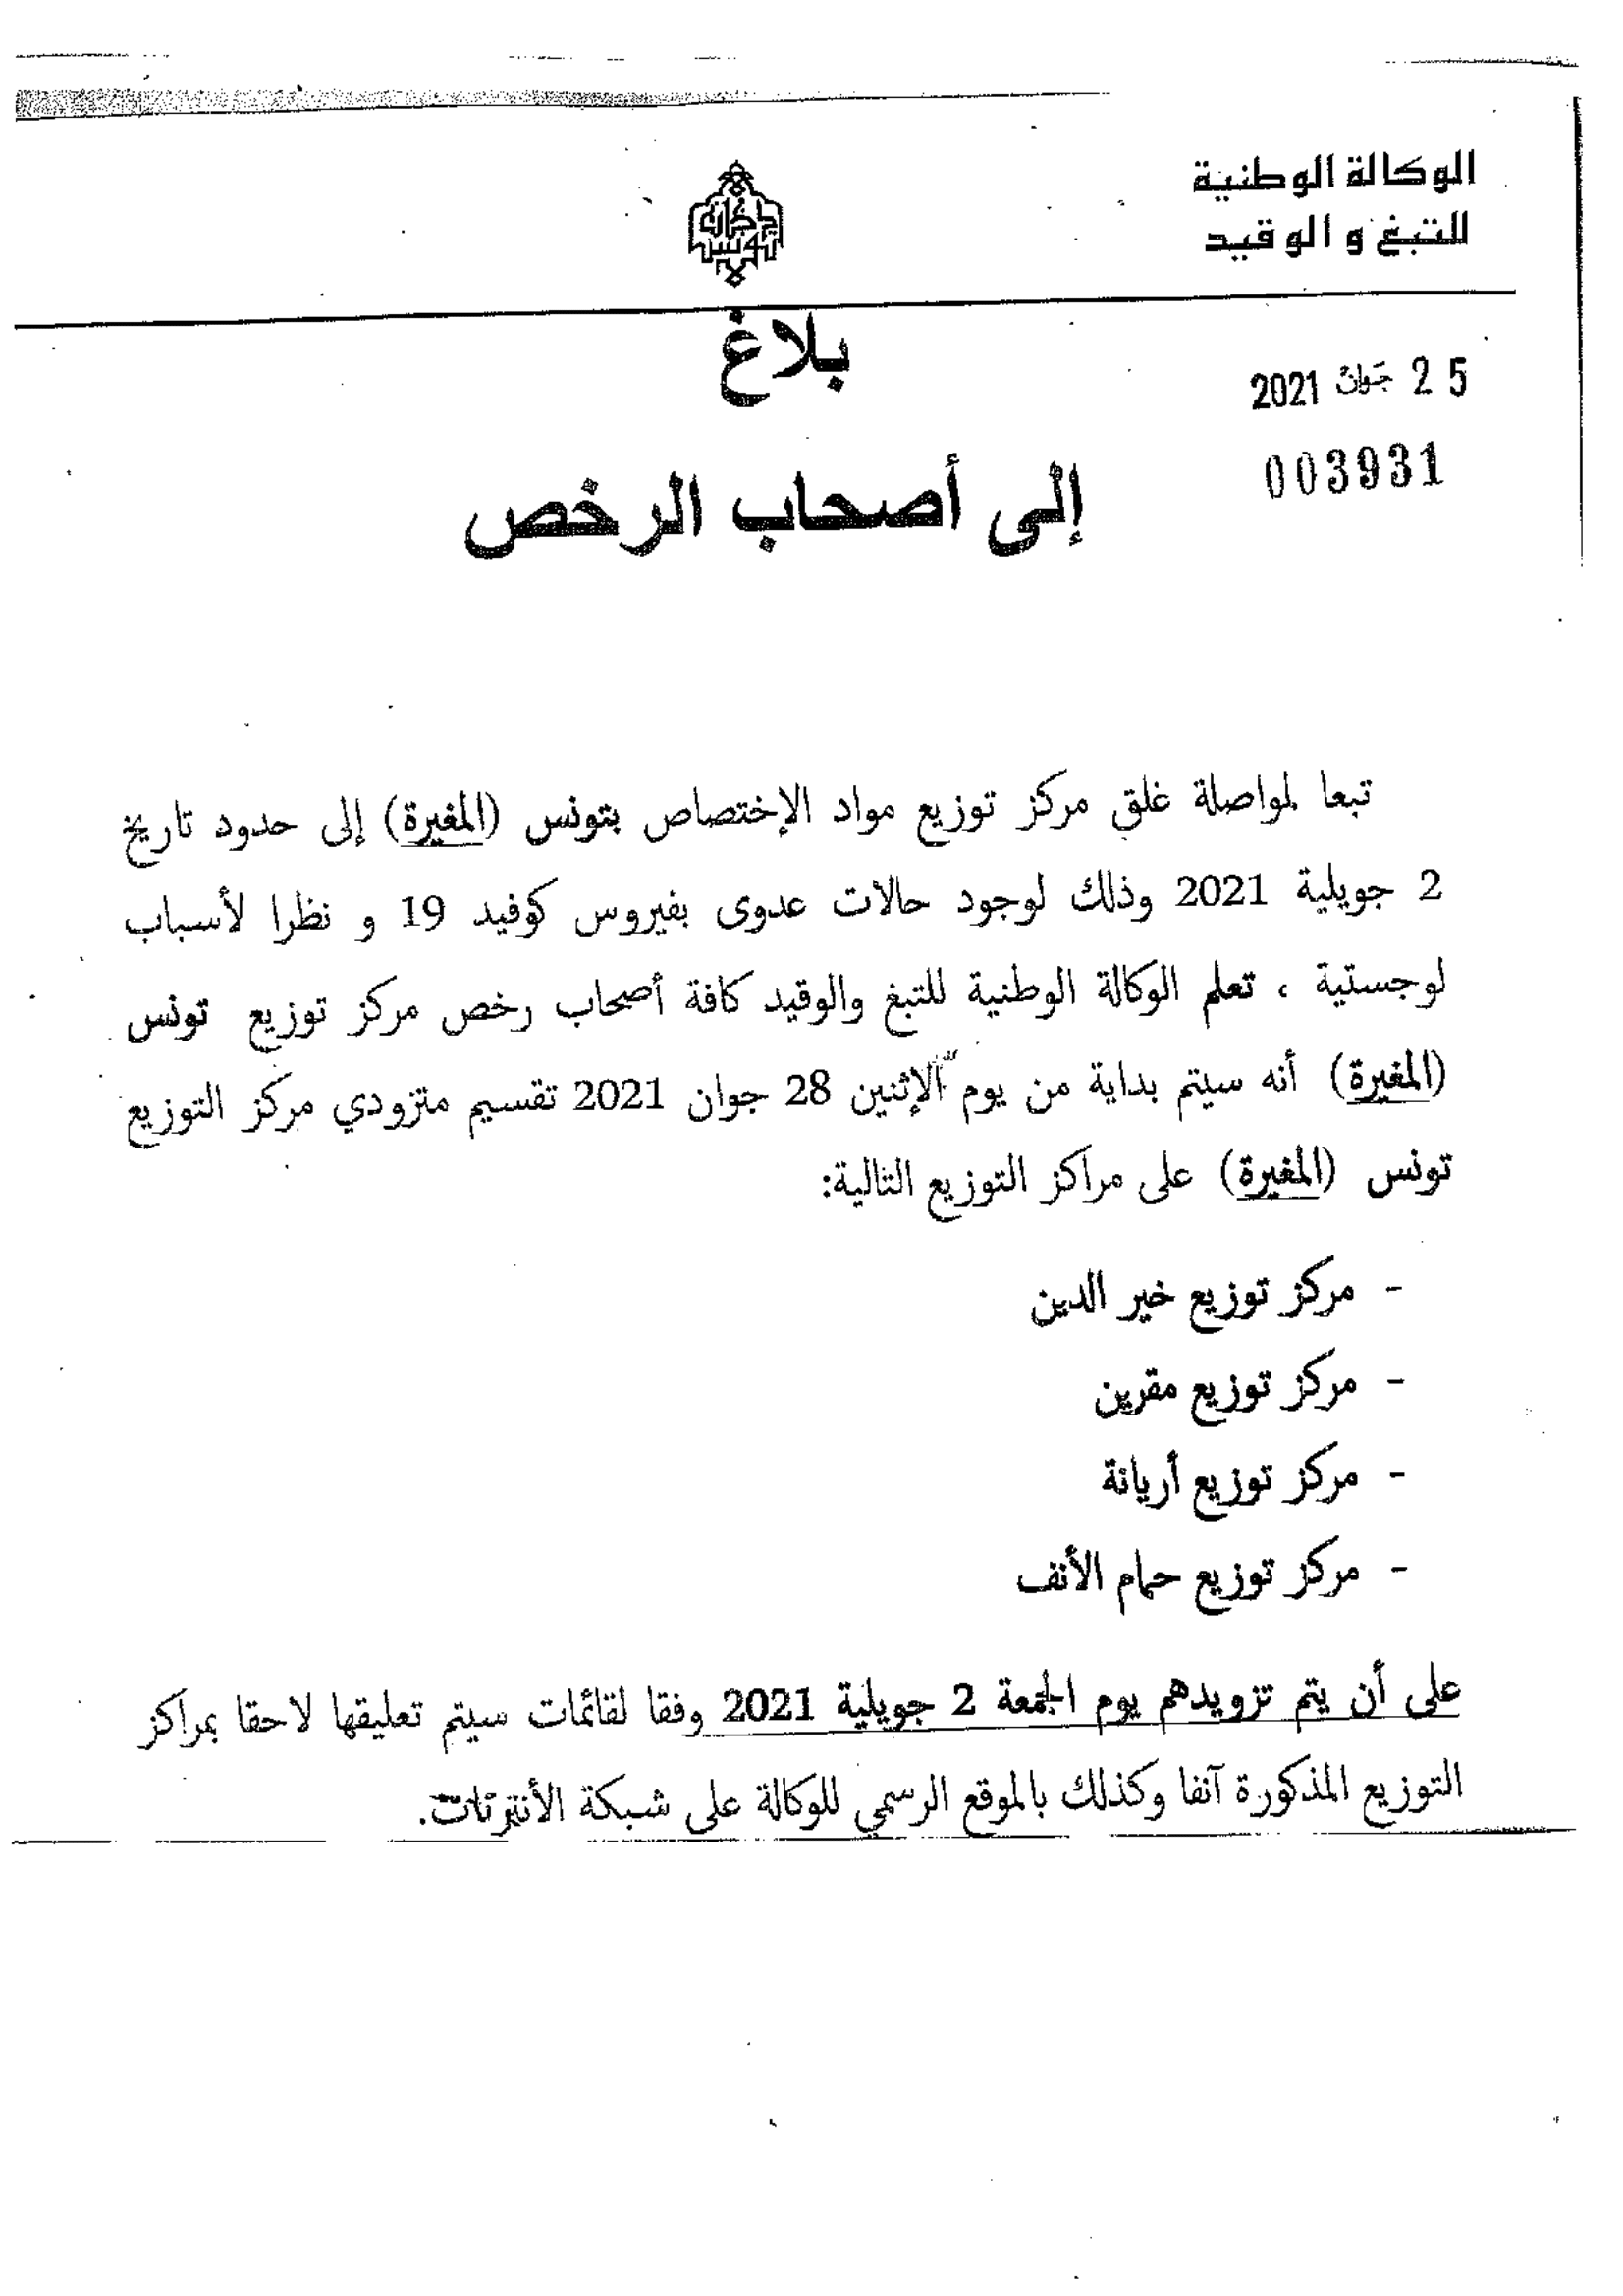 الوكالة الوطنية
للتبغ و الوقيد
بلاغ
25 جوان 2021
003931
إلى أصحاب الرخص
تبعا لمواصلة غلق مركز توزيع مواد الإختصاص بتونس (المغيرة) إلى حدود تاريخ
2 جويلية 2021 وذلك لوجود حالات عدوى بفيروس كوفيد 19 و نظرا لأسباب
لوجستية ، تعلم الوكالة الوطنية للتبغ والوقيد كافة أصحاب رخص مركز توزيع تونس
(المغيرة) أنه سيتم بداية من يوم الإثنين 28 جوان 2021 تقسيم متزودي مركز التوزيع
تونس (المغيرة) على مراكز التوزيع التالية:
- مركز توزيع خير الدين
- مركز توزيع مقرين
- مركز توزيع أريانة
- مركز توزيع حمام الأنف
على أن يتم تزويدهم يوم الجمعة 2 جويلية 2021 وفقا لقائمات سيتم تعليقها لاحقا بمراكز
التوزيع المذكورة آنفا وكذلك بالموقع الرسمي للوكالة على شبكة الأنترنات.